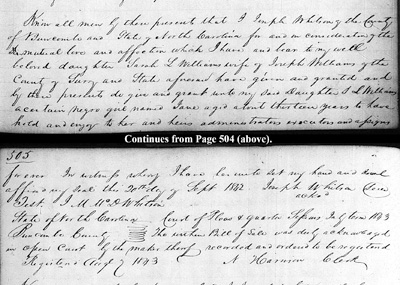 Know all men by these present that I Joseph Whitson of the County
of Buncombe and State of North Carolina for and in consideration of the
mutual love and affection which I have and bear to my well
beloved daughter Sarah L Williams wife of Joseph Williams of the
County of Surry and State aforesaid have given and granted and
by these presents do give and grant unto my said Daughter S L Williams
a certain negro girl named Jane aged about thirteen years to have
hold and enjoy to her and heirs administrators executors and assigns
Continues from Page 504 (above).
505
forever In witness whereof I have hereunto set my hand and
affixed my seal the day of Sept 1842 Joseph Whitson
Test J M
State of North Carolina Court of Pleas & Quarter Sessions
Buncombe County The within Bill of Sale was duly acknowledged
in open Court by the maker thereof recorded and ordered to be registered
Registered 7 1843 N Harrison Clerk